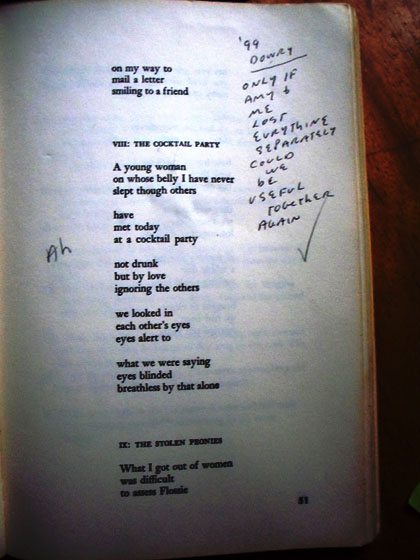 on my way to
mail a letter
smiling to a friend
VIII: THE COCKTAIL PARTY
A young woman
on whose belly I have never
slept though others
have
met today
at a cocktail party
not drunk
but by love
ignoring the others
we looked in
each other's eyes
eyes alert to
what we were saying
eyes blinded
breathless by that alone
IX: THE STOLEN PEONIES
What I got out of women
was difficult
to assess Flossie
51
'99
DOWRY
ONLY IF
AMY &
ME
LOST
EVRYTHING
SEPARATELY
COULD
WE
BE
USEFUL
TOGETHER
AGAIN
Ah